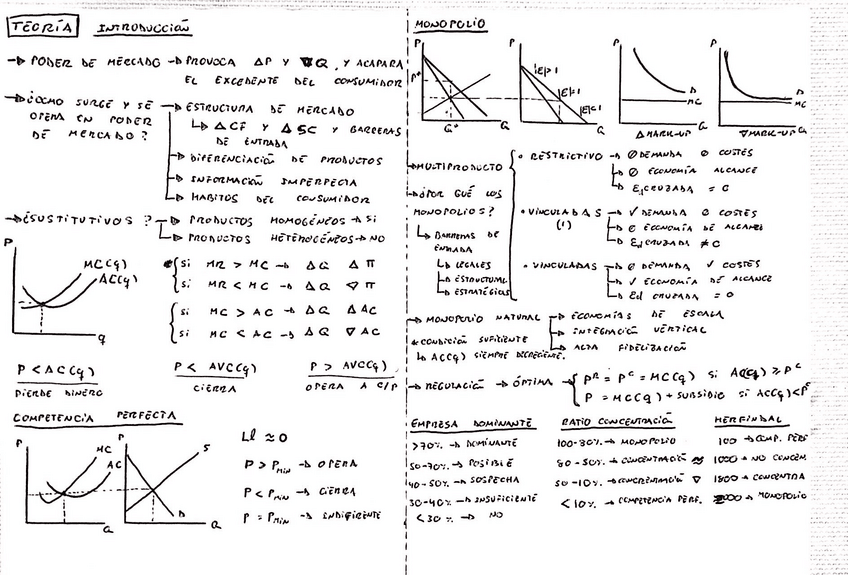 TEORÍA INTRODUCCIÓN
PODER DE MERCADO → PROVOCA ΔP Y ∇Q, Y ACAPARA
EL EXCEDENTE DEL CONSUMIDOR
¿CÓMO SURGE Y SE
OPERA EN PODER
DE MERCADO?
ESTRUCTURA DE MERCADO
↳ ΔCF Y ΔSC Y BARRERAS
DE ENTRADA
DIFERENCIACIÓN DE PRODUCTOS
INFORMACIÓN IMPERFECTA
HABITOS DEL CONSUMIDOR
¿SUSTITUTIVOS?
PRODUCTOS HOMOGÉNEOS → SI
PRODUCTOS HETEROGÉNEOS → NO
P
MC(q)
AC(q)
q
SI MR > MC → ΔQ Δπ
SI MR < MC → ΔQ ∇π
SI MC > AC → ΔQ ΔAC
SI MC < AC → ΔQ ∇AC
P < AC(q)
PIERDE DINERO
P < AVC(q)
CIERRA
P > AVC(q)
OPERA A C/P
COMPETENCIA PERFECTA
P
MC
AC
Q
P
S
D
Q
LI ≈ 0
P > PMIN → OPERA
P < PMIN → CIERRA
P = PMIN → INDIFERENTE
MONOPOLIO
P
P*
Q*
Q
P
|E|>1
|E|=1
|E|<1
Q
P
D
MC
Q
Δ MARK-UP
P
D
MC
Q
∇ MARK-UP
MULTIPRODUCTO
• RESTRICTIVO → ∅ DEMANDA ∅ COSTES
∅ ECONOMÍA ALCANCE
Ed CRUZADA = 0
• VINCULADAS (1) → ✓ DEMANDA ∅ COSTES
∅ ECONOMÍA DE ALCANCE
Ed CRUZADA ≠ 0
• VINCULADAS → ∅ DEMANDA ✓ COSTES
✓ ECONOMÍA DE ALCANCE
Ed CRUZADA = 0
¿POR QUÉ LOS
MONOPOLIOS?
↳ BARRERAS DE
ENTRADA
LEGALES
ESTRUCTURAL
ESTRATÉGICAS
MONOPOLIO NATURAL
ECONOMÍAS DE ESCALA
INTEGRACIÓN VERTICAL
ALTA FIDELIZACIÓN
* CONDICIÓN SUFICIENTE
↳ AC(q) SIEMPRE DECRECIENTE.
REGULACIÓN → ÓPTIMA →
PR = PC = MC(q) SI AC(q) ≥ PC
P = MC(q) + SUBSIDIO SI AC(q) < PC
EMPRESA DOMINANTE
>70% → DOMINANTE
50-70% → POSIBLE
40-50% → SOSPECHA
30-40% → INSUFICIENTE
<30% → NO
RATIO CONCENTRACIÓN
100-80% → MONOPOLIO
80-50% → CONCENTRACIÓN ≈
50-10% → CONCENTRACIÓN ∇
<10% → COMPETENCIA PERF.
HERFINDAL
100 → COMP. PERF
1000 → NO CONCEN
1800 → CONCENTRA
→ MONOPOLIO